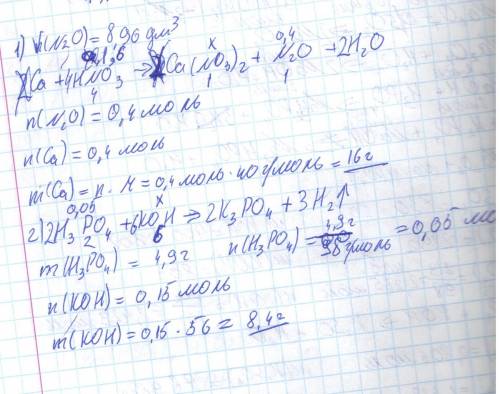 1) V(N₂O) = 8,96 дм³
x 0,4
Ca + 4HNO₃ → Ca(NO₃)₂ + N₂O + 2H₂O
4 1 1
n(N₂O) = 0,4 моль
n(Ca) = 0,4 моль
m(Ca) = n · M = 0,4 моль · 40 г/моль = 16 г
0,05 x
2) 2H₃PO₄ + 6KOH → 2K₃PO₄ + 3H₂↑
2 6
m(H₃PO₄) = 4,9 г n(H₃PO₄) = 4,9 г / 98 г/моль = 0,05
n(KOH) = 0,15 моль
m(KOH) = 0,15 · 56 = 8,4 г